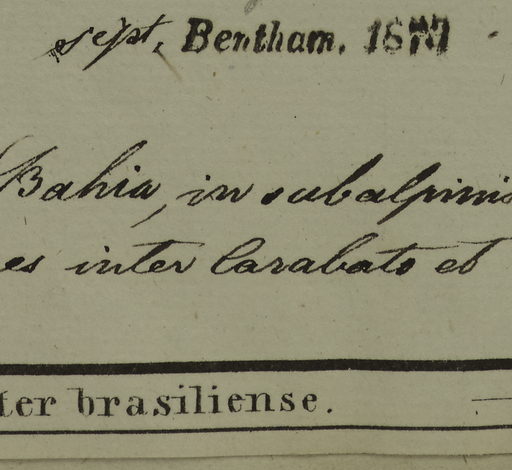 sept. Bentham. 18
Bahia, in subalpinis
es inter Carabato et
ter brasiliense.